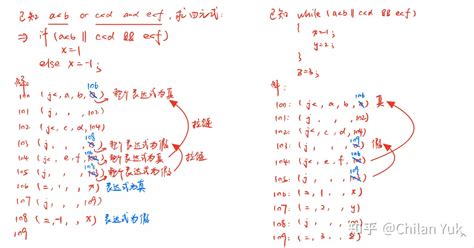 已知 a<b or c<d and e<f, 求四元式:
⇒ if (a<b || c<d && e<f)
x=1
else x=-1;
解:
100 (j<, a, b, 106) 整个表达式为真
101 (j, , , 102)
102 (j<, c, d, 104)
103 (j, , , 108) 整个表达式为假
104 (j<, e, f, 106) 整个表达式为真
105 (j, , , 108) 整个表达式为假
拉链
拉链
106 (=, 1, , x) 表达式为真
107 (j, , , 109)
108 (=, -1, , x) 表达式为假
109
已知 while (a<b || c<d && e<f)
{
x=1;
y=2;
}
z=3;
解:
100: (j<, a, b, 106) 真
101: (j, , , 102)
102: (j<, c, d, 104)
103: (j, , , 109) 假
104: (j<, e, f, 106)
105: (j, , , 109)
106: (=, 1, , x)
107: (=, 2, , y)
109: (=, 3, , z)
知乎 @Chilan Yuk